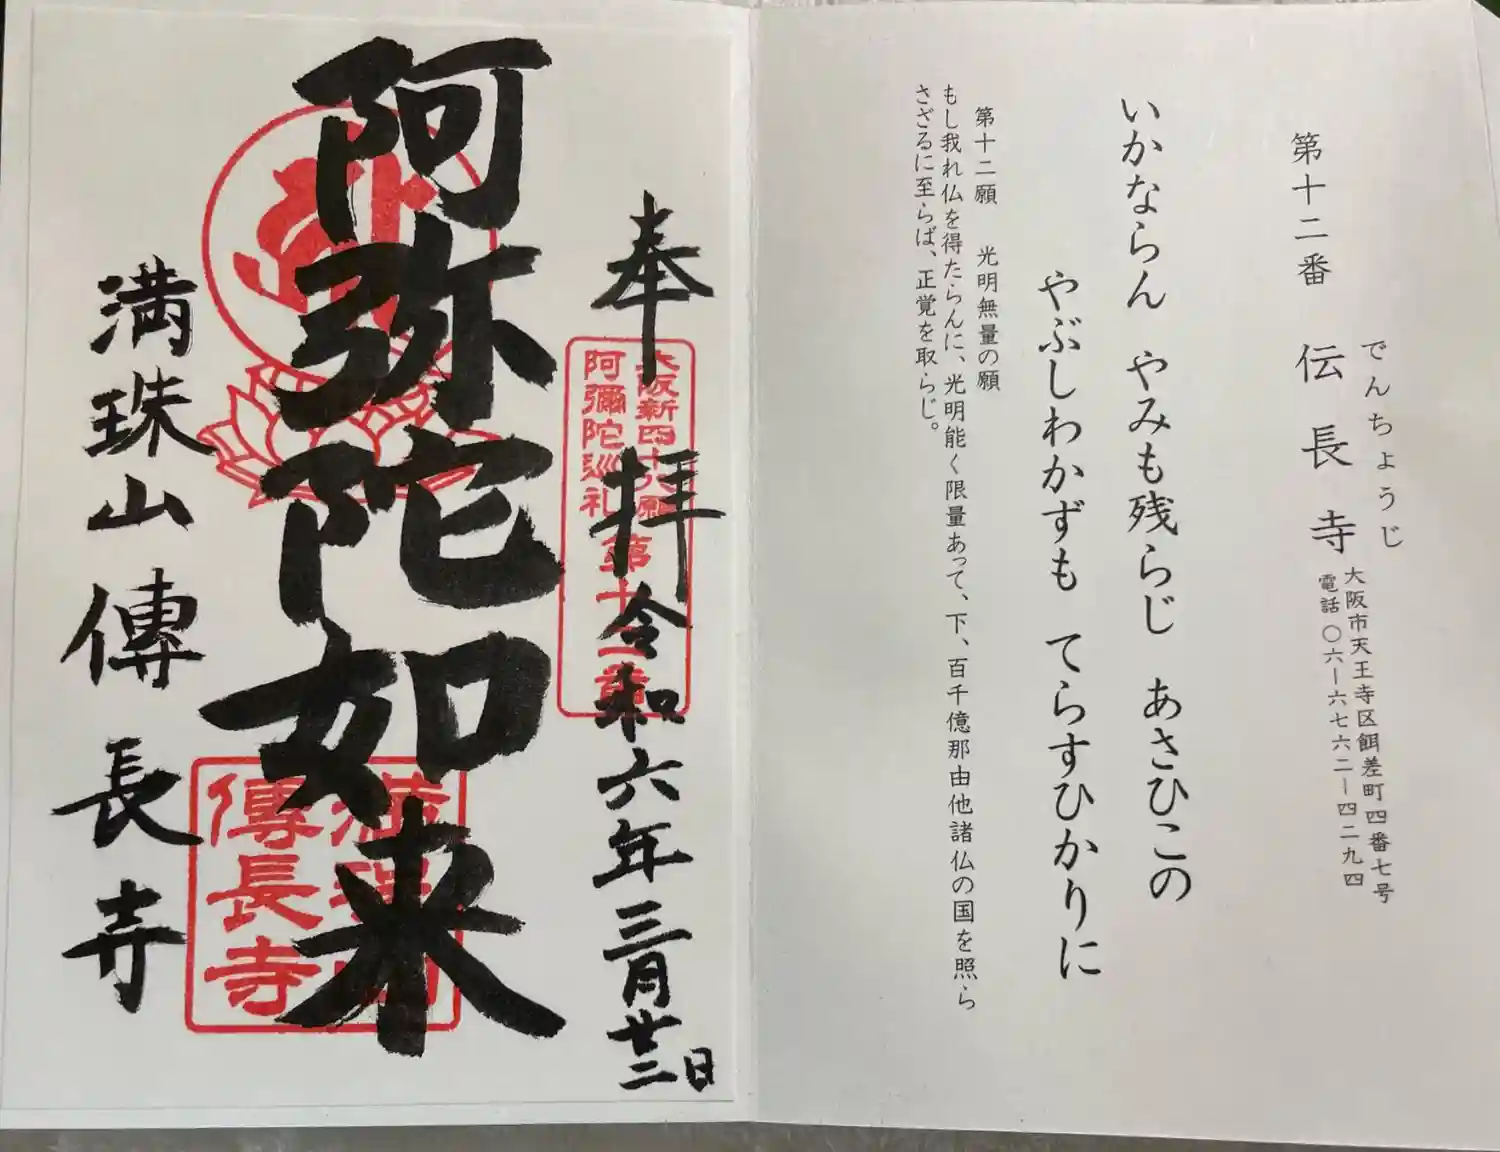 第十二番 伝長寺
でんちょうじ
大阪市天王寺区餌差町四番七号
電話 〇六ー六七六二ー四二九四
いかならん やみも残らじ あさひこの
やぶしわかずも てらすひかりに
第十二願 光明無量の願
もし我れ仏を得たらんに、光明能く限量あって、下、百千億那由他諸仏の国を照ら
さざるに至らば、正覚を取らじ。
奉拝 令和六年三月廿二日
大阪新四十八願
阿彌陀巡礼 第十二番
阿弥陀如来
満珠山傳長寺
満珠山
傳長寺